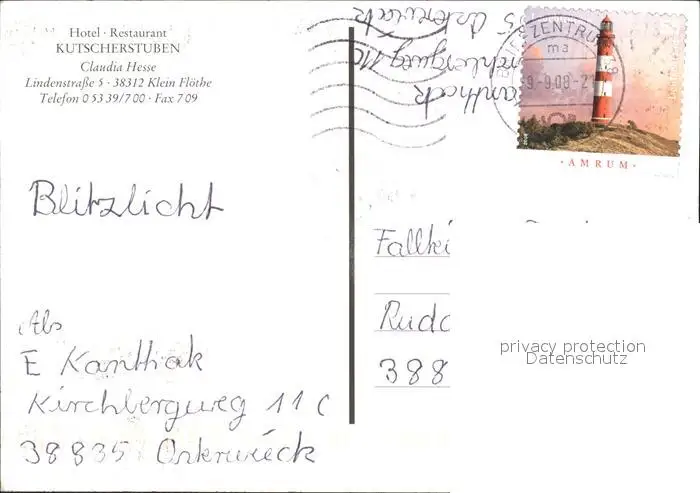 Hotel · Restaurant
KUTSCHERSTUBEN
Claudia Hesse
Lindenstraße 5 · 38312 Klein Flöthe
Telefon 0 53 39/7 00 · Fax 7 09
Blitzlicht
Abs
E Kanthak
Kirchbergweg 11 C
38835 Osterwieck
BRIEFZENTRUM
ma
9.-9.08-2
· AMRUM ·
Fallkei
Rudo
388
privacy protection
Datenschutz